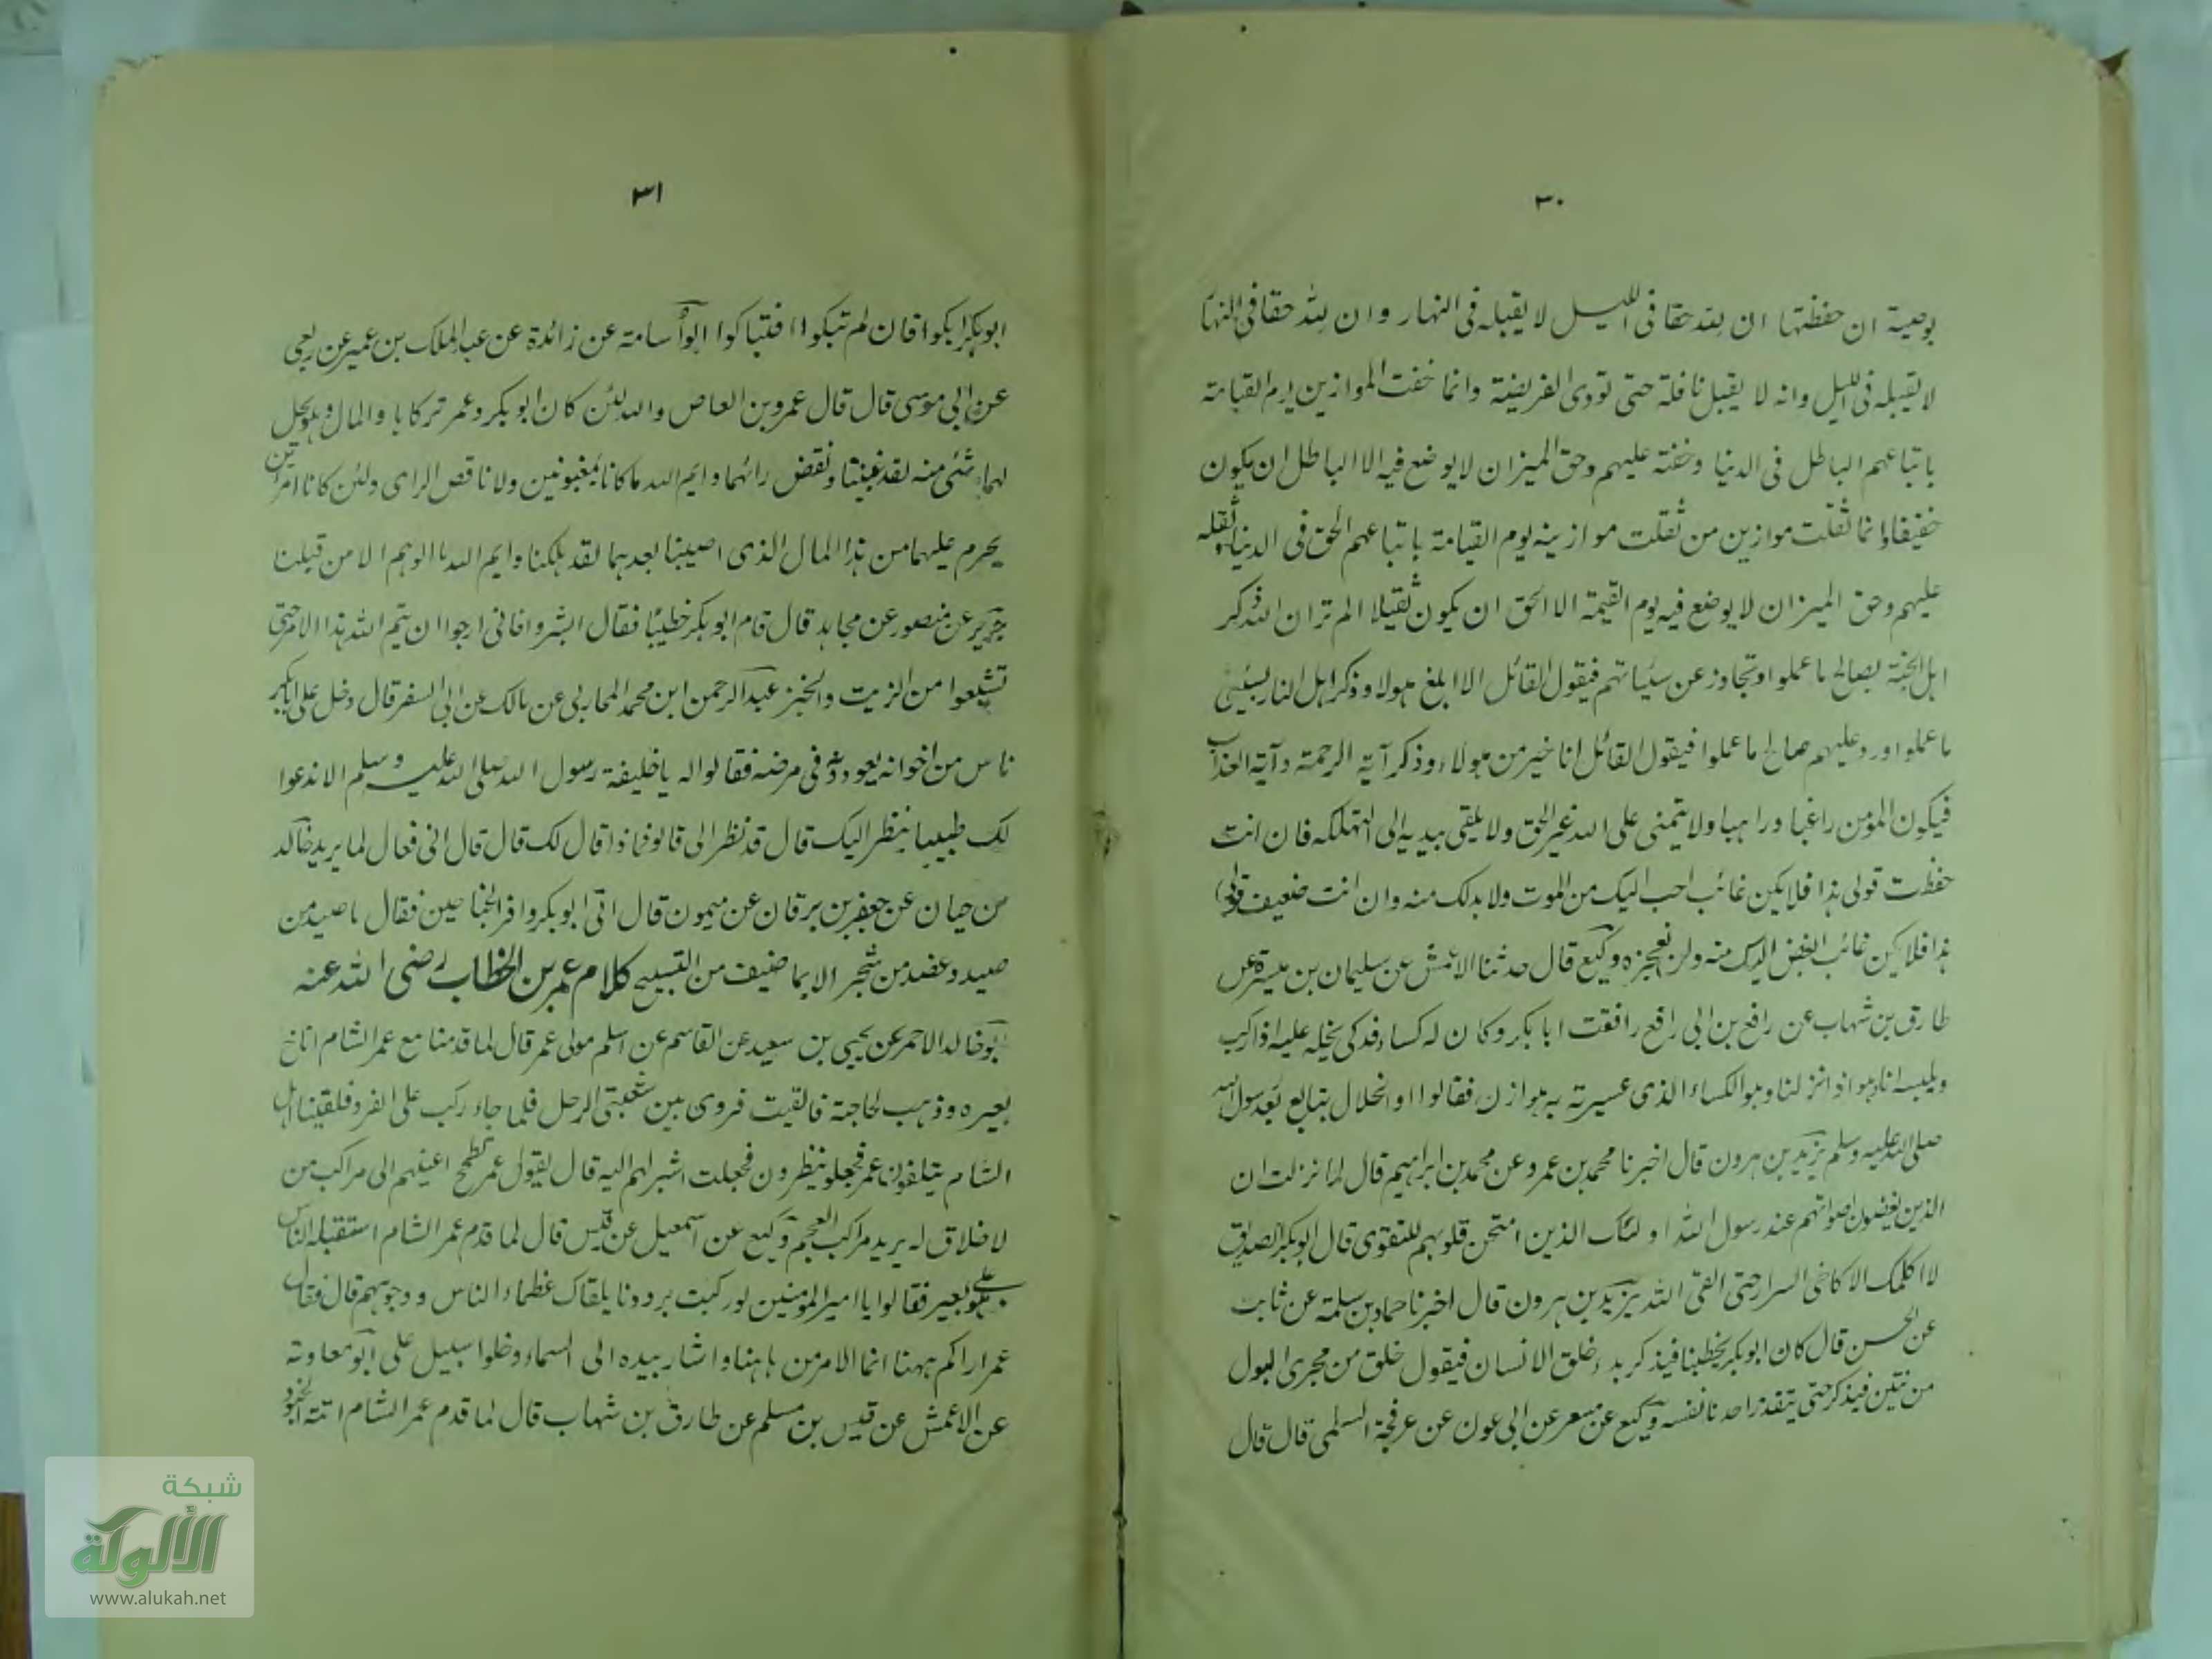 ٣٠
بوصية ان حفظتها ان لله حقا فى الليل لا يقبله فى النهار وان لله حقا فى النهار
لا يقبله فى الليل وانه لا يقبل نافلة حتى تودى الفريضة وانما خفت الموازين يوم القيامة
باتباعهم الباطل فى الدنيا وخفته عليهم وحق الميزان لا يوضع فيه الا الباطل ان يكون
خفيفا وانما ثقلت موازين من ثقلت موازينه يوم القيامة باتباعهم الحق فى الدنيا وثقله
عليهم وحق الميزان لا يوضع فيه يوم القيمة الا الحق ان يكون ثقيلا الم تر ان الله ذكر
اهل الجنة بصالح ما عملوا وتجاوز عن سيئاتهم فيقول القائل الا ابلغ هولاء وذكر اهل النار بسيئ
ما عملوا ورد عليهم صالح ما عملوا فيقول القائل انا خير من هولاء وذكر آية الرحمة وآية العذاب
فيكون المؤمن راغبا وراهبا ولا يتمنى على الله غير الحق ولا يلقى بيديه الى التهلكه فان انت
حفظت قولى هذا فلا يكن غائب احب اليك من الموت ولا بدلك منه وان انت ضعيف قولى
هذا فلا يكن غائب ابغض اليك منه ولن تعجزه وكيع قال حدثنا الاعمش عن سليمان بن ميسرة عن
طارق بن شهاب عن رافع بن ابى رافع رافقت ابا بكر وكان له كساء فدكى يخله عليه اذا ركب
ويلبسه انا وهو اذا نزلنا وهو الكساء الذى عيرته به هوازن فقالوا اوا الخلال نبايع بعد رسول الله
صلى الله عليه وسلم يزيد بن هرون قال اخبرنا محمد بن عمرو عن محمد بن ابراهيم قال لما نزلت ان
الذين يغضون اصواتهم عند رسول الله اولئك الذين امتحن قلوبهم للتقوى قال ابو بكر الصديق
لا اكلمك الا كاخى السرار حتى القى الله يزيد بن هرون قال اخبرنا حماد بن سلمة عن ثابت
عن الحسن قال كان ابو بكر يخطبنا فيذكر بدء خلق الانسان فيقول خلق من مجرى البول
من نتين فيذكر حتى يتقذر احدنا نفسه وكيع عن مسعر عن ابى عون عن عرفجة السلمى قال قال
٣١
ابو بكر ابكوا فان لم تبكوا فتباكوا ابو أسامة عن زائدة عن عبد الملك بن عمير عن ربعى
عن ابى موسى قال قال عمرو بن العاص والله لئن كان ابو بكر وعمر تركا هذا المال وهو يحل
لهما شئ منه لقد غبنا ونقض رائهما وايم الله ما كانا بمغبونين ولا ناقص الراى ولئن كانا امرأين
يحرم عليهما من هذا المال الذى اصبنا بعدهما لقد هلكنا وايم الله ما الوهم الا من قبلنا
جرير عن منصور عن مجاهد قال قام ابو بكر خطيبا فقال ابشروا فانى ارجوا ان يتم الله هذا الامر حتى
تشبعوا من الزيت والخبز عبد الرحمن ابن محمد المحاربى عن مالك عن ابى السفر قال دخل على ابى بكر
ناس من اخوانه يعودونه فى مرضه فقالوا له يا خليفة رسول الله صلى الله عليه وسلم الا ندعوا
لك طبيبا ينظر اليك قال قد نظر الى قالوا فماذا قال لك قال قال انى فعال لما يريد خالد
بن حيان عن جعفر بن برقان عن ميمون قال اتى ابو بكر وافر الجناحين فقال ما صيد من
صيد وعضد من شجر الا بما ضيف من التسبيح كلام عمر بن الخطاب رضى الله عنه
ابو خالد الاحمر عن يحيى بن سعيد عن القاسم عن اسلم مولى عمر قال لما قدمنا مع عمر الشام اناخ
بعيره وذهب لحاجته فالقيت فروى بين شعبتى الرحل فلما جاء ركب على الفرو فلقينا اهل
الشام يتلقون عمر فجعلوا ينظرون فجعلت اشير لهم اليه قال يقول عمر تطمح اعينهم الى مراكب من
لا خلاق له يريد مراكب العجم وكيع عن اسمعيل عن قيس قال لما قدم عمر الشام استقبله الناس
وهو على بعير فقالوا يا امير المومنين لو ركبت برذونا يلقاك عظماء الناس ووجوههم قال فقال
عمر اراكم ههنا انما الامر من هاهنا واشار بيده الى السماء وخلوا سبيل على ابو معاوية
عن الاعمش عن قيس بن مسلم عن طارق بن شهاب قال لما قدم عمر الشام اتته الجنود
شبكة
الألوكة
www.alukah.net